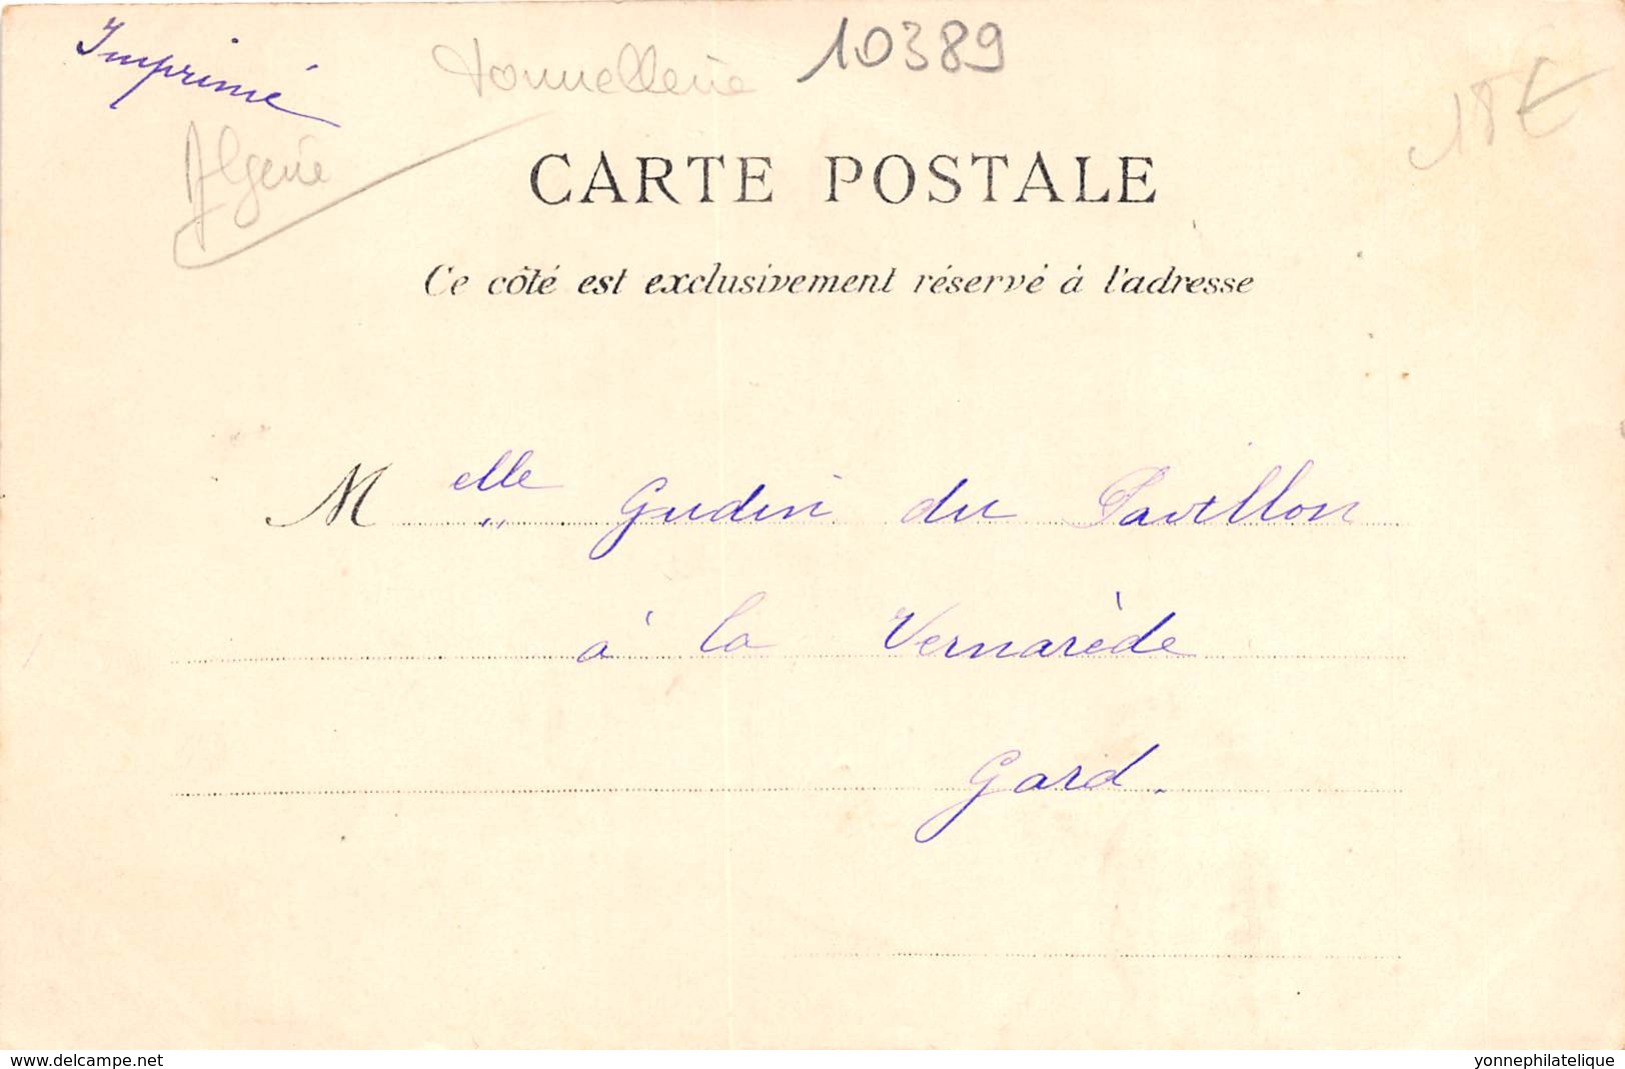 Imprimé
tonnellerie 10389
18€
Algerie
CARTE POSTALE
Ce côté est exclusivement réservé à l'adresse
Melle Gudin du Pavillon
à la Vernarède
Gard.
www.delcampe.net
yonnephilatelique